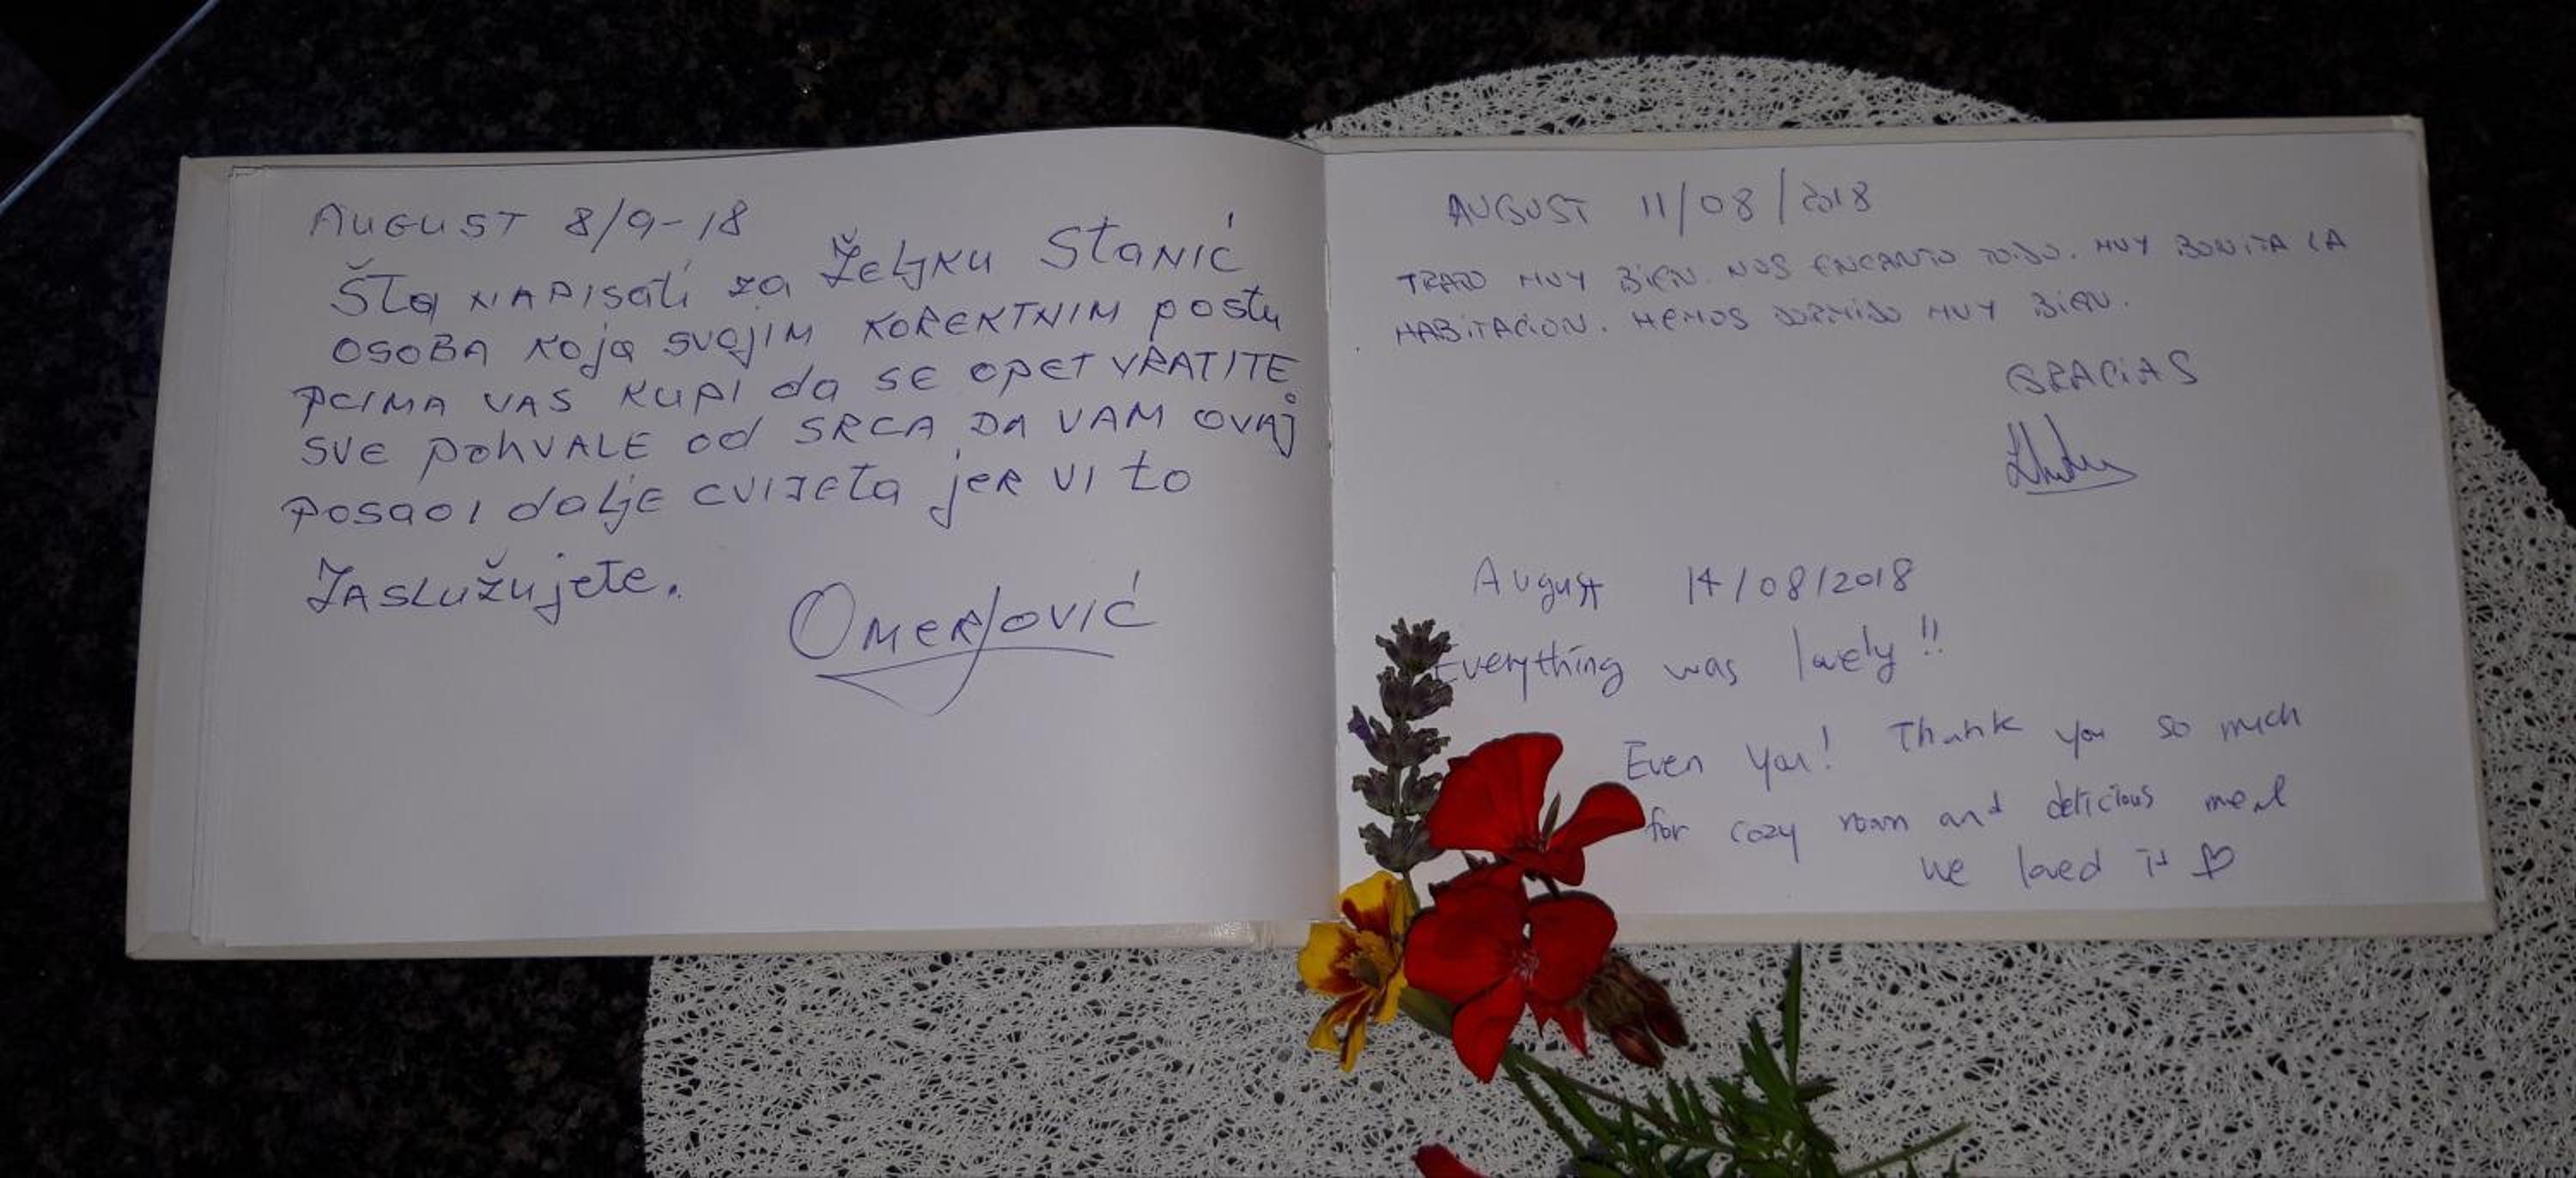 AUGUST 8/9-18
Šta NAPISati za Željku Stanić
OSOBA koja svojim KOREKTNIM postu
PCIMA VAS KUPI da SE OPET VRATITE
SVE pohVALE od SRCA DA VAM OVAJ
POSAO I dalje CVIJETa jER VI to
ZASLUžujete.
OMEROVIĆ
AUGUST 11/08/2018
TRATO MUY BIEN. NOS ENCANTO TODO. MUY BONITA LA
HABITACION. HEMOS DORMIDO MUY BIEN.
GRACIAS
August 14/08/2018
Everything was lovely!!
Even You! Thank you so much
for cozy room and delicious meal
we loved it ♡